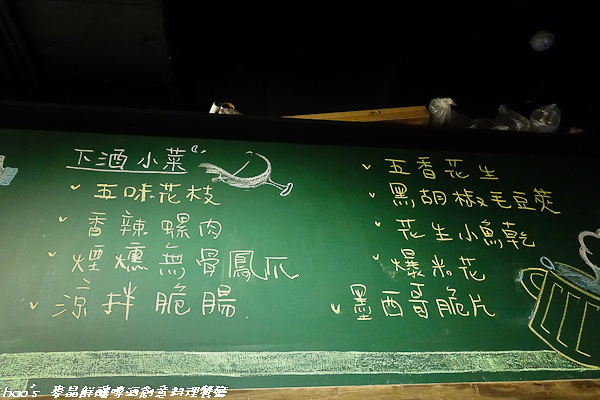 下酒小菜
五味花枝
香辣螺肉
煙燻無骨鳳爪
涼拌脆腸
五香花生
黑胡椒毛豆莢
花生小魚乾
爆米花
墨西哥脆片
hao's 麥晶鮮釀啤酒創意料理餐廳